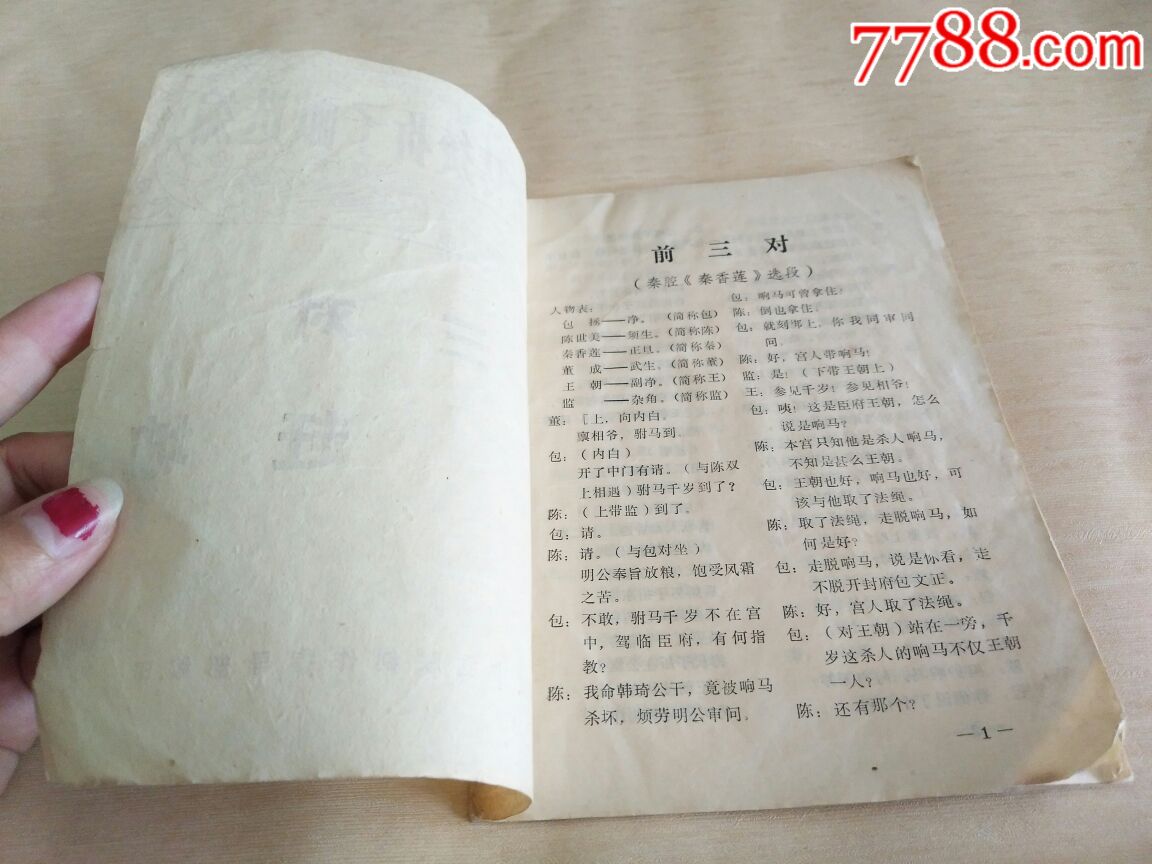 7788.com
前三对
（秦腔《秦香莲》选段）
人物表：
包　拯——净。（简称包）
陈世美——须生。（简称陈）
秦香莲——正旦。（简称秦）
董　成——武生。（简称董）
王　朝——副净。（简称王）
监　　——杂角。（简称监）
董：〔上，向内白。
禀相爷，驸马到。
包：（内白）
开了中门有请。（与陈双
上相遇）驸马千岁到了？
陈：（上带监）到了。
包：请。
陈：请。（与包对坐）
明公奉旨放粮，饱受风霜
之苦。
包：不敢，驸马千岁不在宫
中，驾临臣府，有何指
教？
陈：我命韩琦公干，竟被响马
杀坏，烦劳明公审问。
包：响马可曾拿住？
陈：倒也拿住。
包：就刻绑上，你我同审同
问。
陈：好，宫人带响马！
监：是！（下带王朝上）
王：参见千岁！参见相爷！
包：咦！这是臣府王朝，怎么
说是响马？
陈：本宫只知他是杀人响马，
不知是甚么王朝。
包：王朝也好，响马也好，可
该与他取了法绳。
陈：取了法绳，走脱响马，如
何是好？
包：走脱响马，说是你看，走
不脱开封府包文正。
陈：好，宫人取了法绳。
包：（对王朝）站在一旁，千
岁这杀人的响马不仅王朝
一人？
陈：还有那个？
—1—